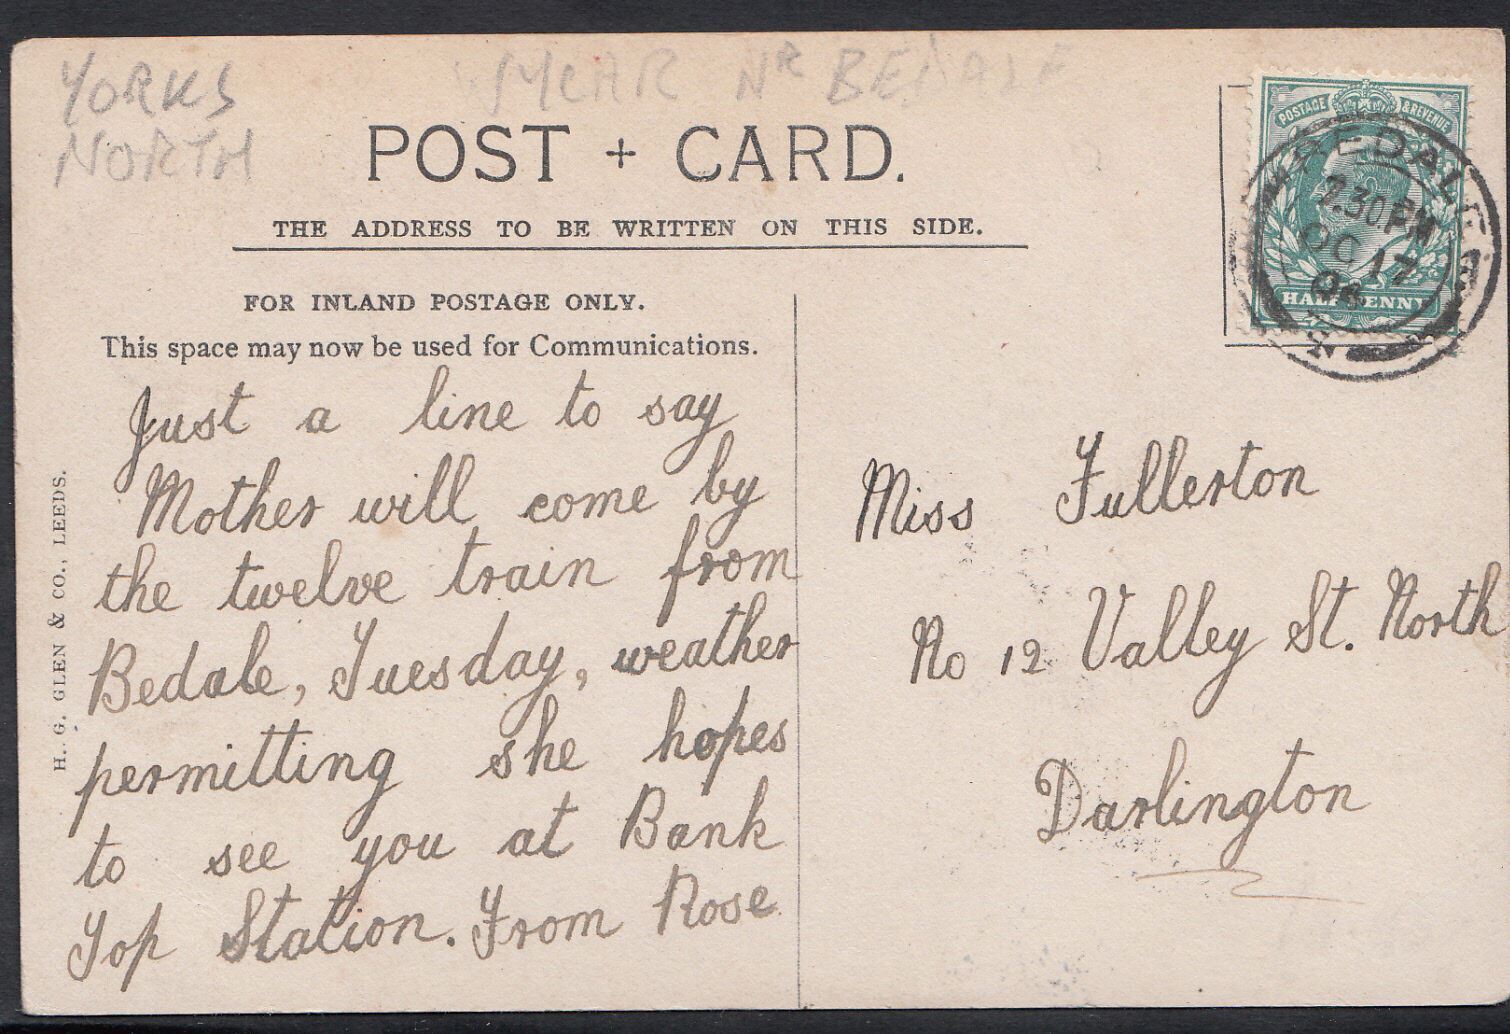 YORKS
NORTH
Nr BEDALE
POST + CARD.
THE ADDRESS TO BE WRITTEN ON THIS SIDE.
FOR INLAND POSTAGE ONLY.
This space may now be used for Communications.
Just a line to say
Mother will come by
the twelve train from
Bedale, Tuesday, weather
permitting she hopes
to see you at Bank
Top Station. From Rose
H. G. GLEN & CO., LEEDS.
POSTAGE & REVENUE
HALFPENNY
BEDALE
7.30PM
OC 17
Miss Fullerton
No 12 Valley St. North
Darlington